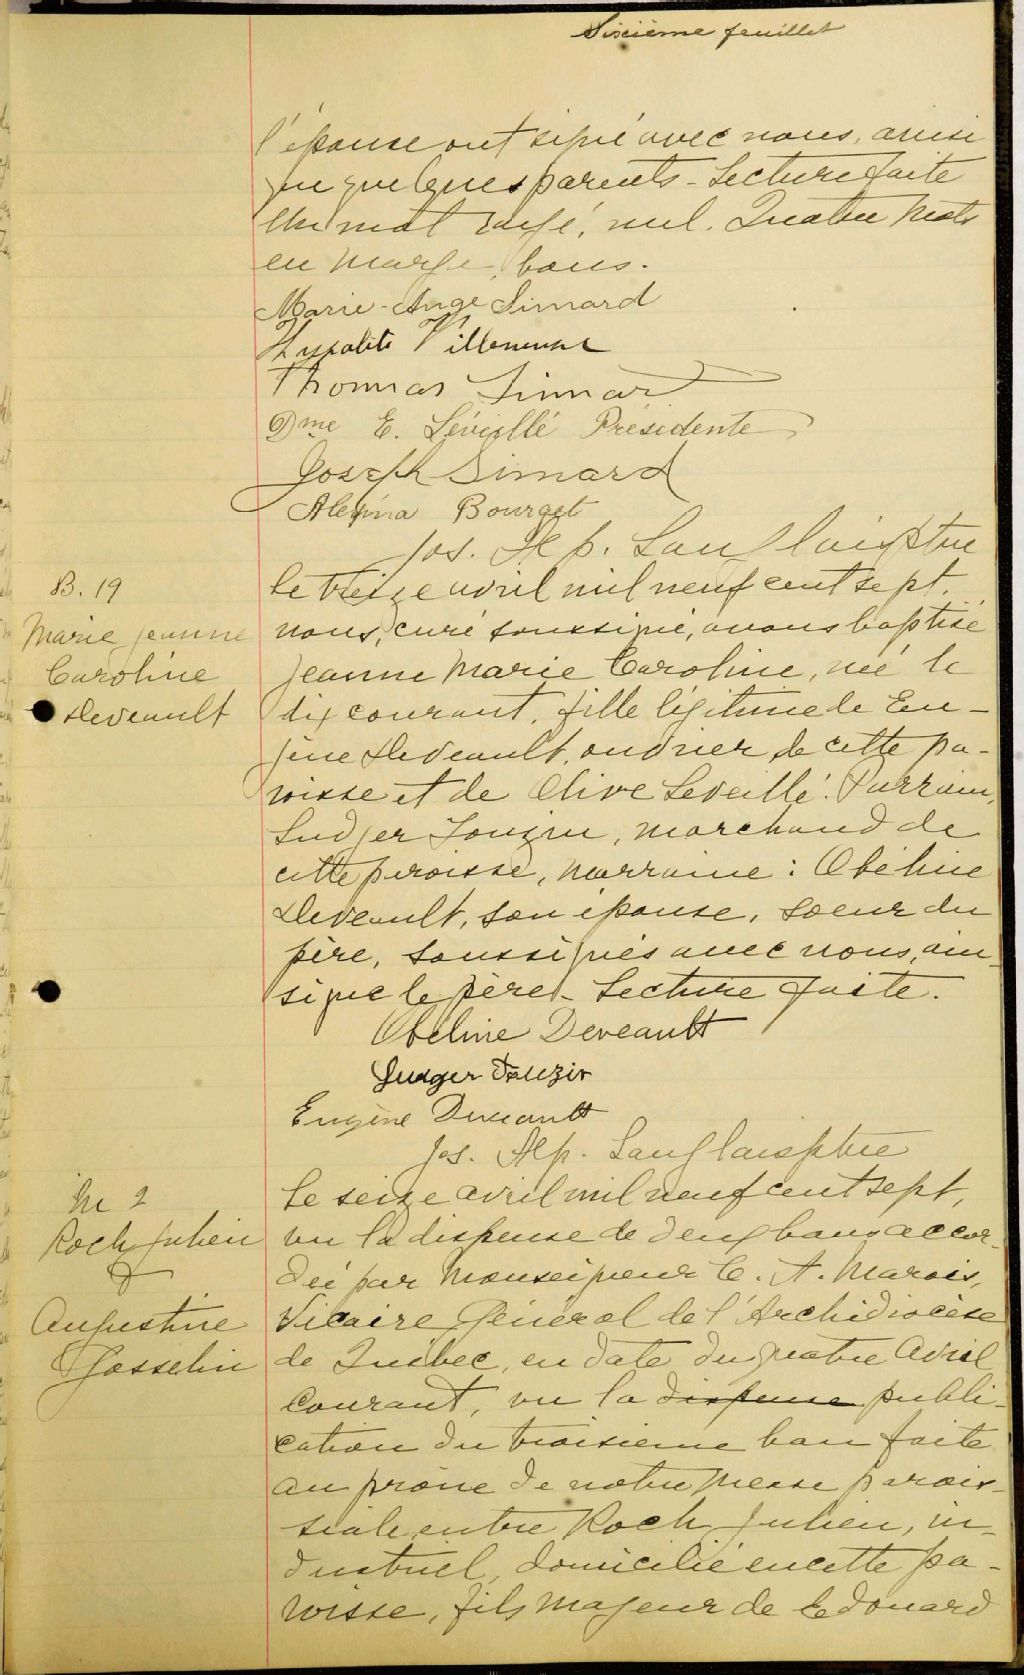 Sixième feuillet
l'épouse ont signé avec nous, ainsi
que quelques parents - Lecture faite
Un mot rayé, nul. Quatre mots
en marge, bons.
Marie-Ange Simard
Hypolite Villeneuve
Thomas Simard
Dme E. Léveillé Présidente
Joseph Simard
Alexina Bourget
Jos. Alp. Langlais ptre
B. 19
Marie Jeanne
Caroline
Deveault
le treize avril mil neuf cent sept.
nous, curé soussigné, avons baptisé
Jeanne Marie Caroline, née le
dix courant, fille légitime de Eu-
gène Deveault, ouvrier de cette pa-
roisse et de Olive Leveillé. Parrain,
Ludger Touzin, marchand de
cette paroisse, marraine : Obéline
Deveault, son épouse, soeur du
père, soussignés avec nous, ain-
si que le père - Lecture faite.
Obeline Deveault
Ludger Touzin
Eugène Deveault
Jos. Alp. Langlais ptre
M 2
Roch Julien
&
Augustine
Gosselin
Le seize avril mil neuf cent sept,
vu la dispense de deux bans accor-
dée par Monseigneur C. A. Marois,
Vicaire Général de l'Archidiocèse
de Québec, en date du quatre Avril
courant, vu la dispense publi-
cation du troisième ban faite
au prône de notre Messe parois-
siale entre Roch Julien, in-
dustriel, domicilié en cette pa-
roisse, fils majeur de Edouard